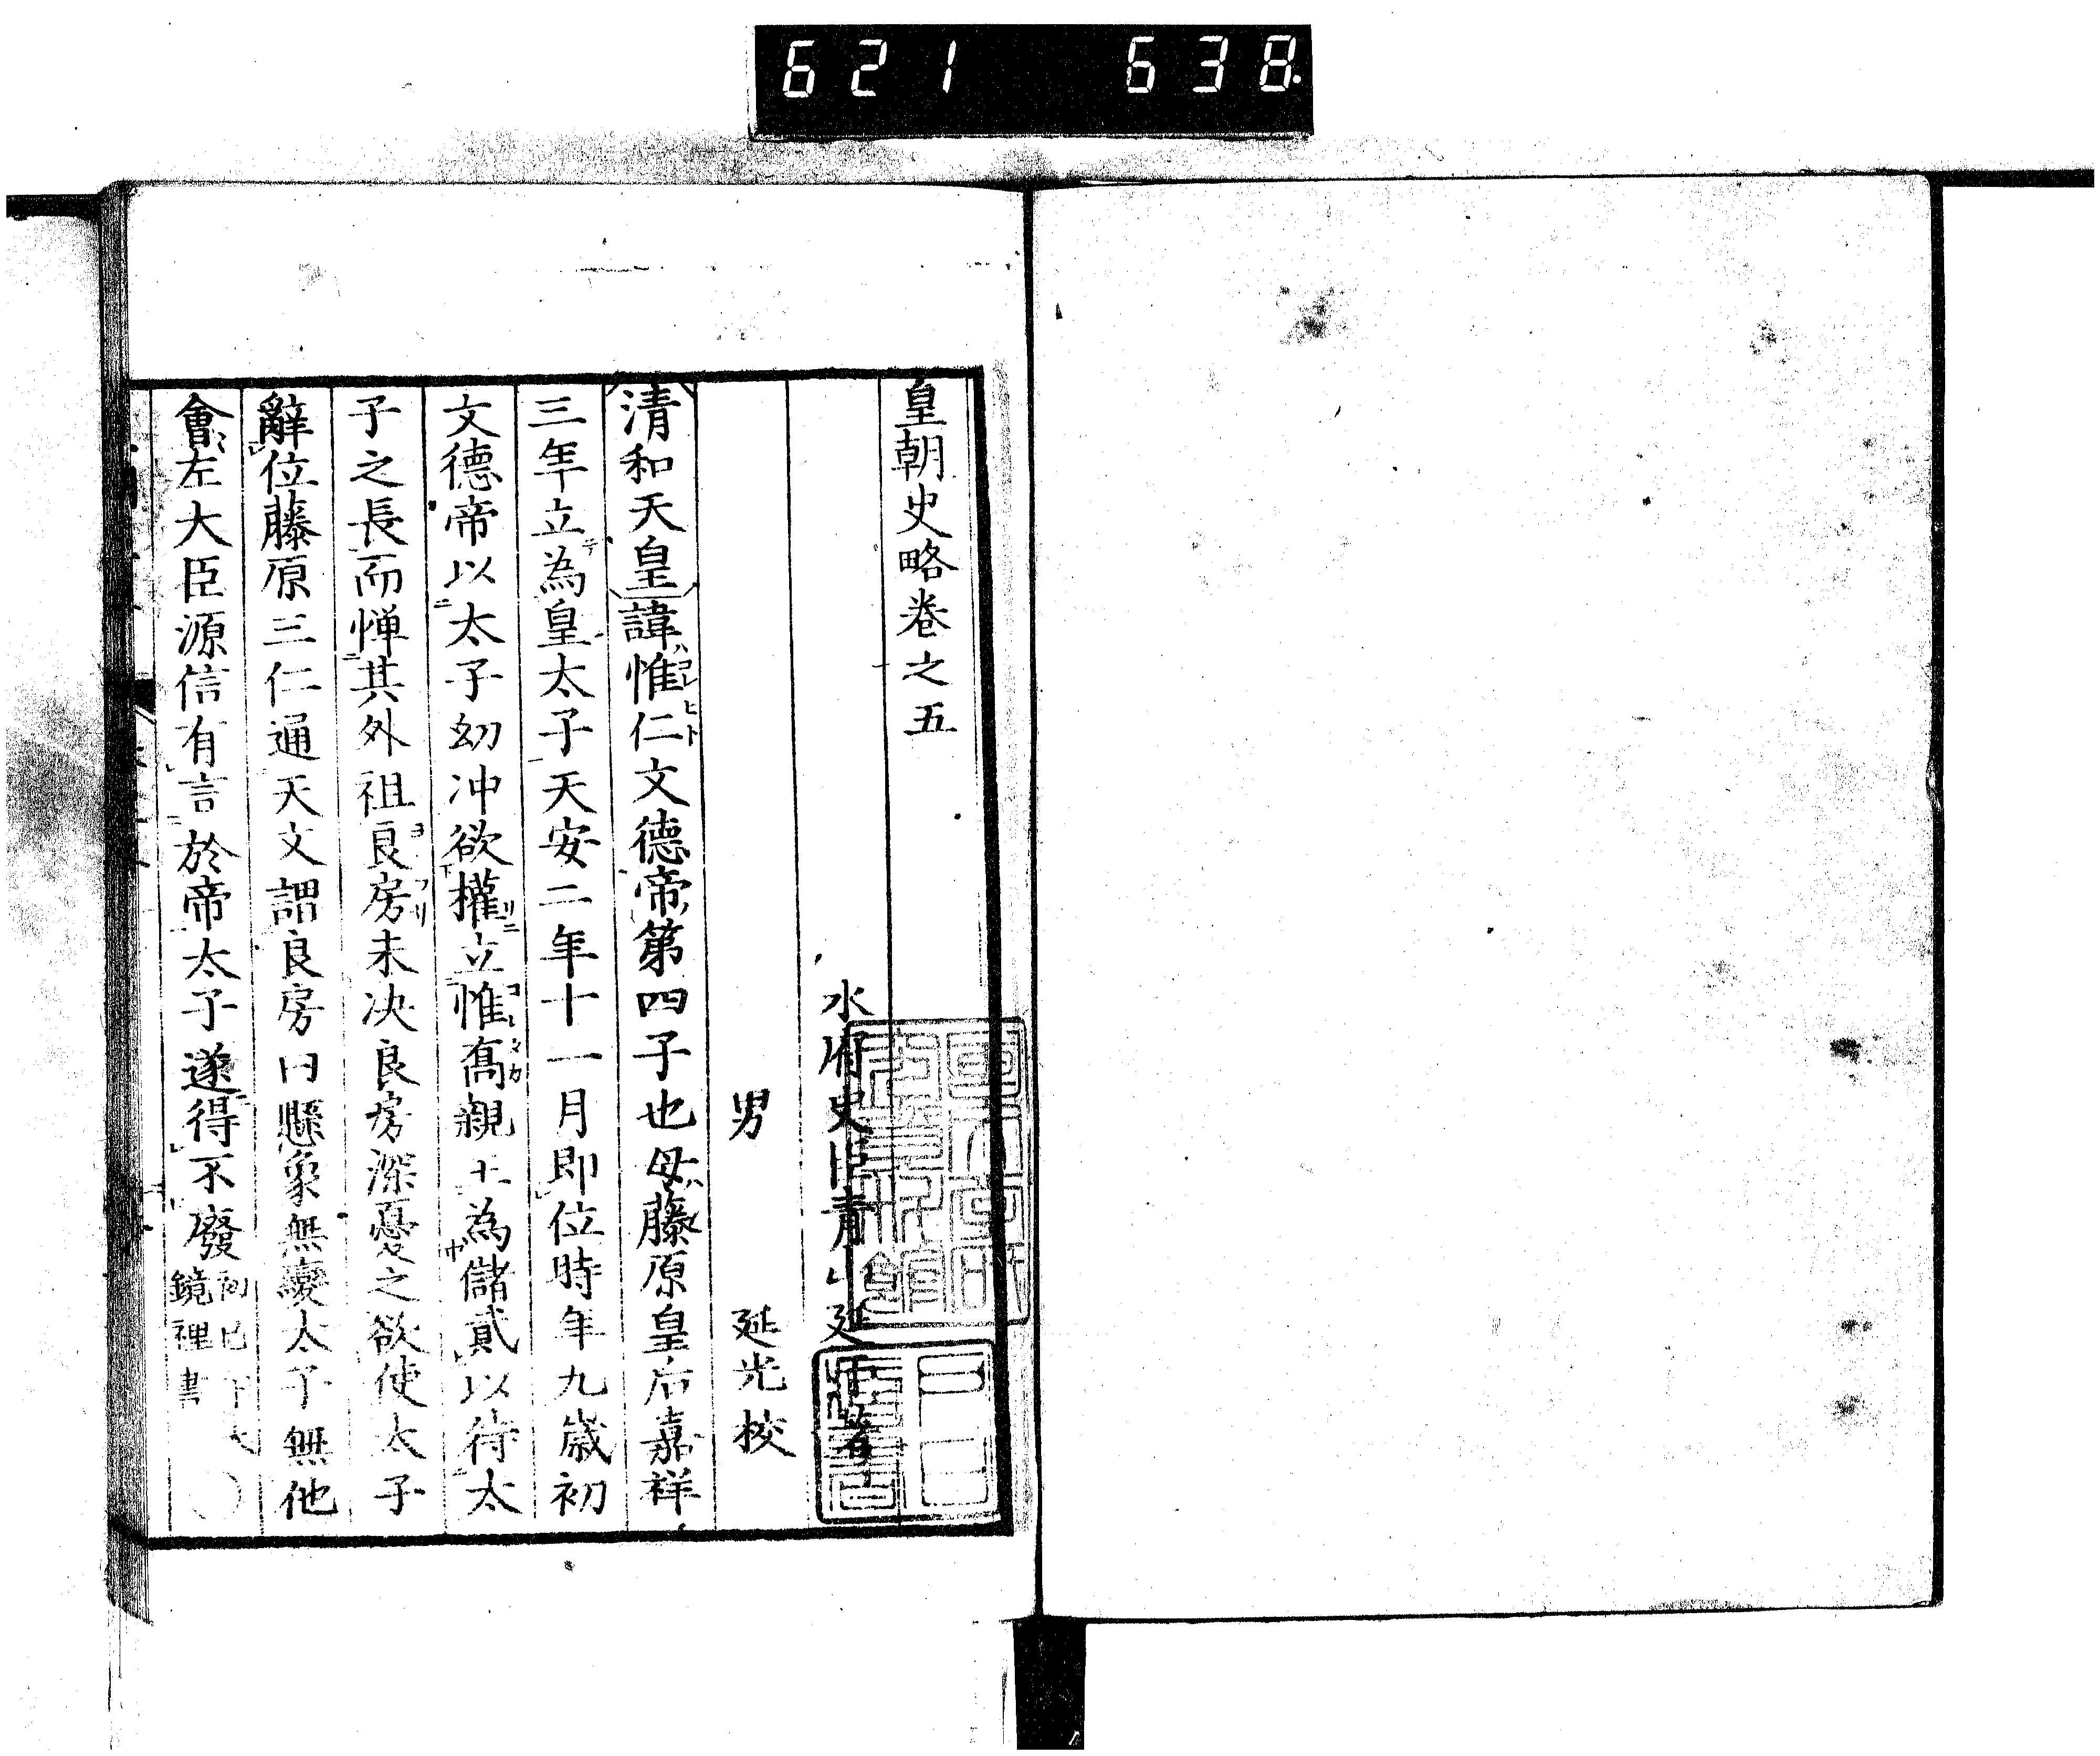 621 638
皇朝史略卷之五
水府史臣青山延于著
男 延光校
清和天皇諱惟仁文德帝第四子也母藤原皇后嘉祥
三年立為皇太子天安二年十一月即位時年九歲初
文德帝以太子幼冲欲權立惟髙親王為儲貳以待太
子之長而憚其外祖良房未决良房深憂之欲使太子
辭位藤原三仁通天文謂良房曰懸象無變太子無他
會左大臣源信有言於帝太子遂得不廢初已下大
鏡裡書